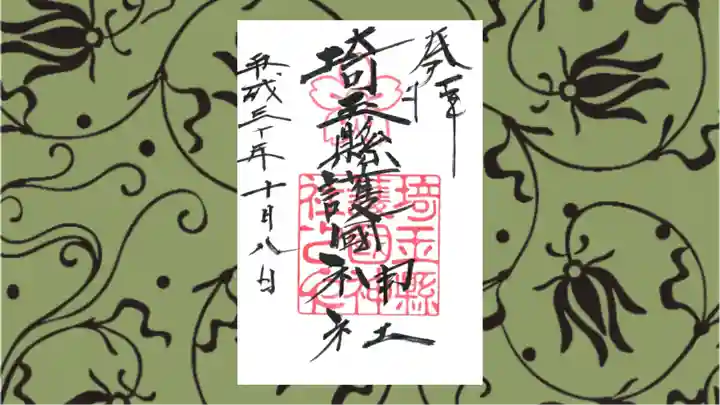 奉拝
埼玉縣護國神社
平成三十年十月八日
埼玉縣
護國神
社之印